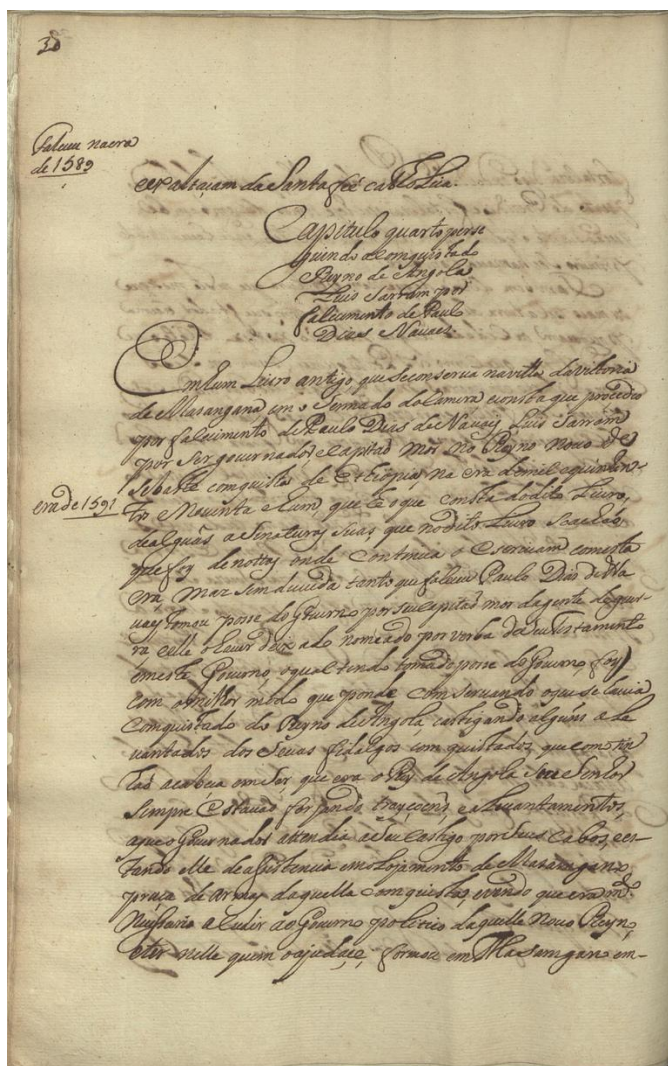 30
faleceu na era
de 1589
exaltaçam da Santa fee catholica.
Capitulo quarto perse
guindo a comquista do
Reyno de Angola
Luis Sarram por
falecimento de Paulo
Dias Navaes
Em hum Livro antigo que se conserva na villa da vitoria
de Masangano em o Senado da Camera consta que procedeo
por falecimento de Paulo Dias de Navay Luis Sarram
por ser governador e Capitaõ mor no Reyno Novo de
Sebaste conquista de Ethiopia na era de mil e quinhen-
era de 1591
tos e Novinta e hum, que he o que consta do dito Livro,
de alguãs asenaturas suas que no dito Livro
que foy de notas onde continua o Escrivam com esta
era maz sem duvida tanto que faleceu Paulo Dias de Na
vay tomou posse do Governo por ser capitaõ mor da gente de guer-
ra e elle o haver deixado nomeado por verba de seu testamento
em este Governo, o qual tendo tomado posse do Governo foy
com o milhor modo que ponde comservando o que se havia
Comquistado do Reyno de Angola castigando alguns ale
vantados dos Sovas fidalgos comquistados, que com ten
taõ a cabeça em ser que era o Rey de Angola seu Senhor
sempre Estavaõ forjando trayçoens, e alevantamentos,
a que o Governador attendia a seu castigo por seus cabos, es-
tando elle de asistencia em o lojamento de Masangano
praça de armas daquella comquista, e vendo que era
necessario acudir ao Governo politico daquelle Novo Reyno,
e ter nelle quem o ajudace, formou em Masangano em-